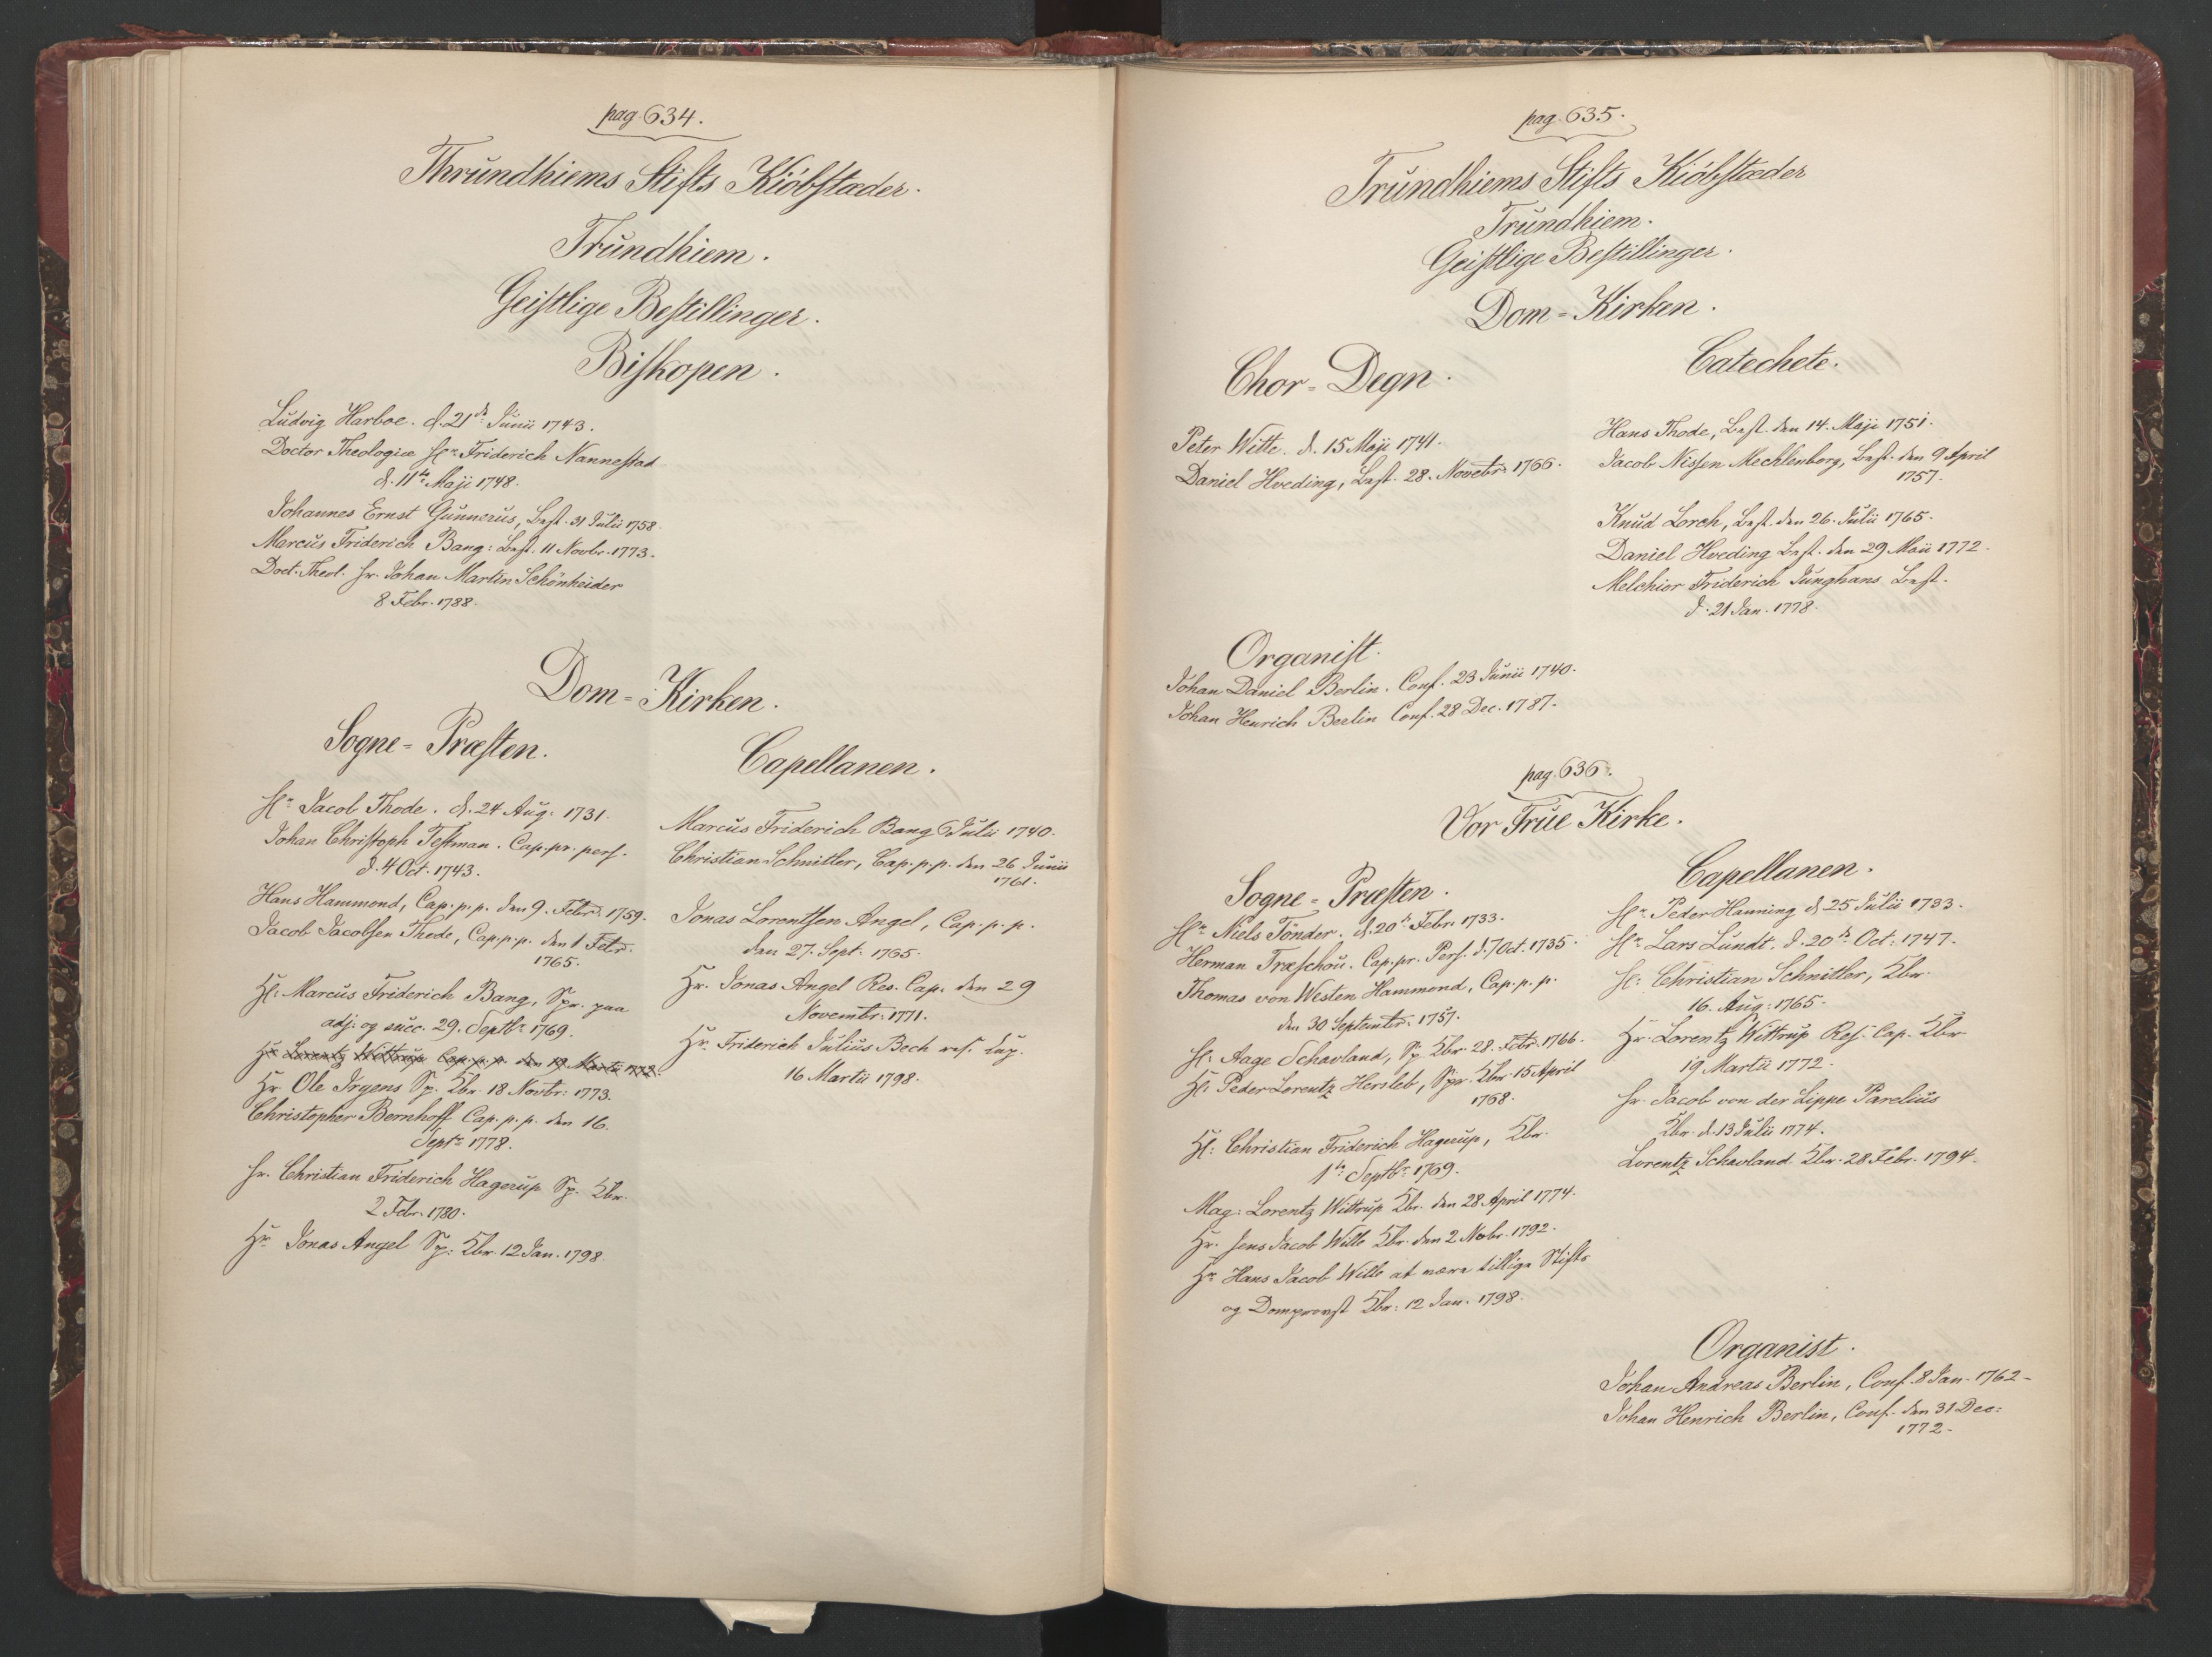 pag. 634.
Thrundhiems Stifts Kiöbstæder.
Trundhiem.
Geistlige Bestillinger.
Biskopen.
Ludvig Harboe. d. 21de Junii 1743.
Doctor Theologiæ Hr Friderich Nannestad
d. 11te Maji 1748.
Johannes Ernst Gunnerus, Best. 31 Julii 1758.
Marcus Friderich Bang: Best. 11 Novbr. 1773.
Doct. Theol. Hr. Johan Martin Schönheider
8 Febr. 1788.
Dom-Kirken.
Sogne-Præsten.
Hr Jacob Thode. d. 24 Aug: 1731.
Johan Christoph Testman. Cap. pr. pers.
d. 4 Oct. 1743.
Hans Hammond, Cap. p. p. den 9. Febr: 1759.
Jacob Jacobsen Thode, Cap. p. p. den 1 Febr.
1765.
H: Marcus Friderich Bang, Spr. paa
adj: og succ. 29. Septbr 1769.
Hr Lorentz Wittrup Cap. p. p. den 19 Martii 1772.
Hr Ole Irgens Sp. Kbr. 18 Novbr: 1773.
Christopher Bernhoff Cap. p. p. den 16.
Septr 1778.
Hr. Christian Friderich Hagerup Sp. Kbr.
2 Febr. 1780.
Hr Jonas Angel Sp: Kbr. 12 Jan. 1798.
Capellanen.
Marcus Friderich Bang 6 Julii 1740.
Christian Schnitler, Cap. p. p. den 26 Junii
1761.
Jonas Lorentsen Angel, Cap. p. p.
den 27. Sept. 1765.
Hr. Jonas Angel Res. Cap. den 29
Novembr: 1771.
Hr. Friderich Julius Bech res. Cap.
16 Martii 1798.
pag. 635.
Trundhiems Stifts Kiöbstæder
Trundhiem.
Geistlige Bestillinger.
Dom-Kirken.
Chor-Degn.
Peter Witte. d. 15 Maji 1741.
Daniel Hveding, Best. 28. Novebr. 1766.
Catechete.
Hans Thode, Best. den 14. Maji 1751.
Jacob Nissen Mechlenborg, Best. den 9 April
1757.
Knud Lorch, Best. den 26. Julii 1765.
Daniel Hveding Best. den 29 Maii 1772.
Melchior Friderich Junghans Best.
d. 21 Jan. 1778.
Organist.
Johan Daniel Berlin. Conf. 23 Junii 1740.
Johan Henrich Berlin Conf. 28 Dec. 1787.
pag. 636.
Vor Frue Kirke.
Sogne-Præsten.
Hr Niels Tönder. d. 20de Febr. 1733.
Herman Træschou. Cap. pr. Pers. d. 7 Oct. 1735.
Thomas von Westen Hammond, Cap. p. p.
den 30 Septembr: 1757.
H: Aage Schavland, Sp. Kbr. 28. Febr. 1766.
H: Peder Lorentz Hersleb, Spr. Kbr. 15 April
1768.
H: Christian Friderich Hagerup, Kbr.
1te Septbr 1769.
Mag: Lorentz Wittrup Kbr. den 28 April 1774.
Hr. Jens Jacob Wille Kbr. den 2 Nobr. 1792.
Hr Hans Jacob Wille at være tillige Stifts
og Domprovst Kbr: 12 Jan. 1798.
Capellanen.
Hr Peder Hanning d. 25 Julii 1733.
Hr Lars Lundt. d. 20de Oct: 1747.
H: Christian Schnitler, Kbr.
16. Aug: 1765.
Hr. Lorentz Wittrup Res. Cap. Kbr
19 Martii 1772.
Hr. Jacob von der Lippe Parelius
Kbr. d. 13 Julii 1774.
Lorentz Schavland Kbr. 28 Febr. 1794.
Organist.
Johan Andreas Berlin, Conf. 8 Jan. 1762-
Johan Henrich Berlin, Conf. den 31 Dec:
1772-